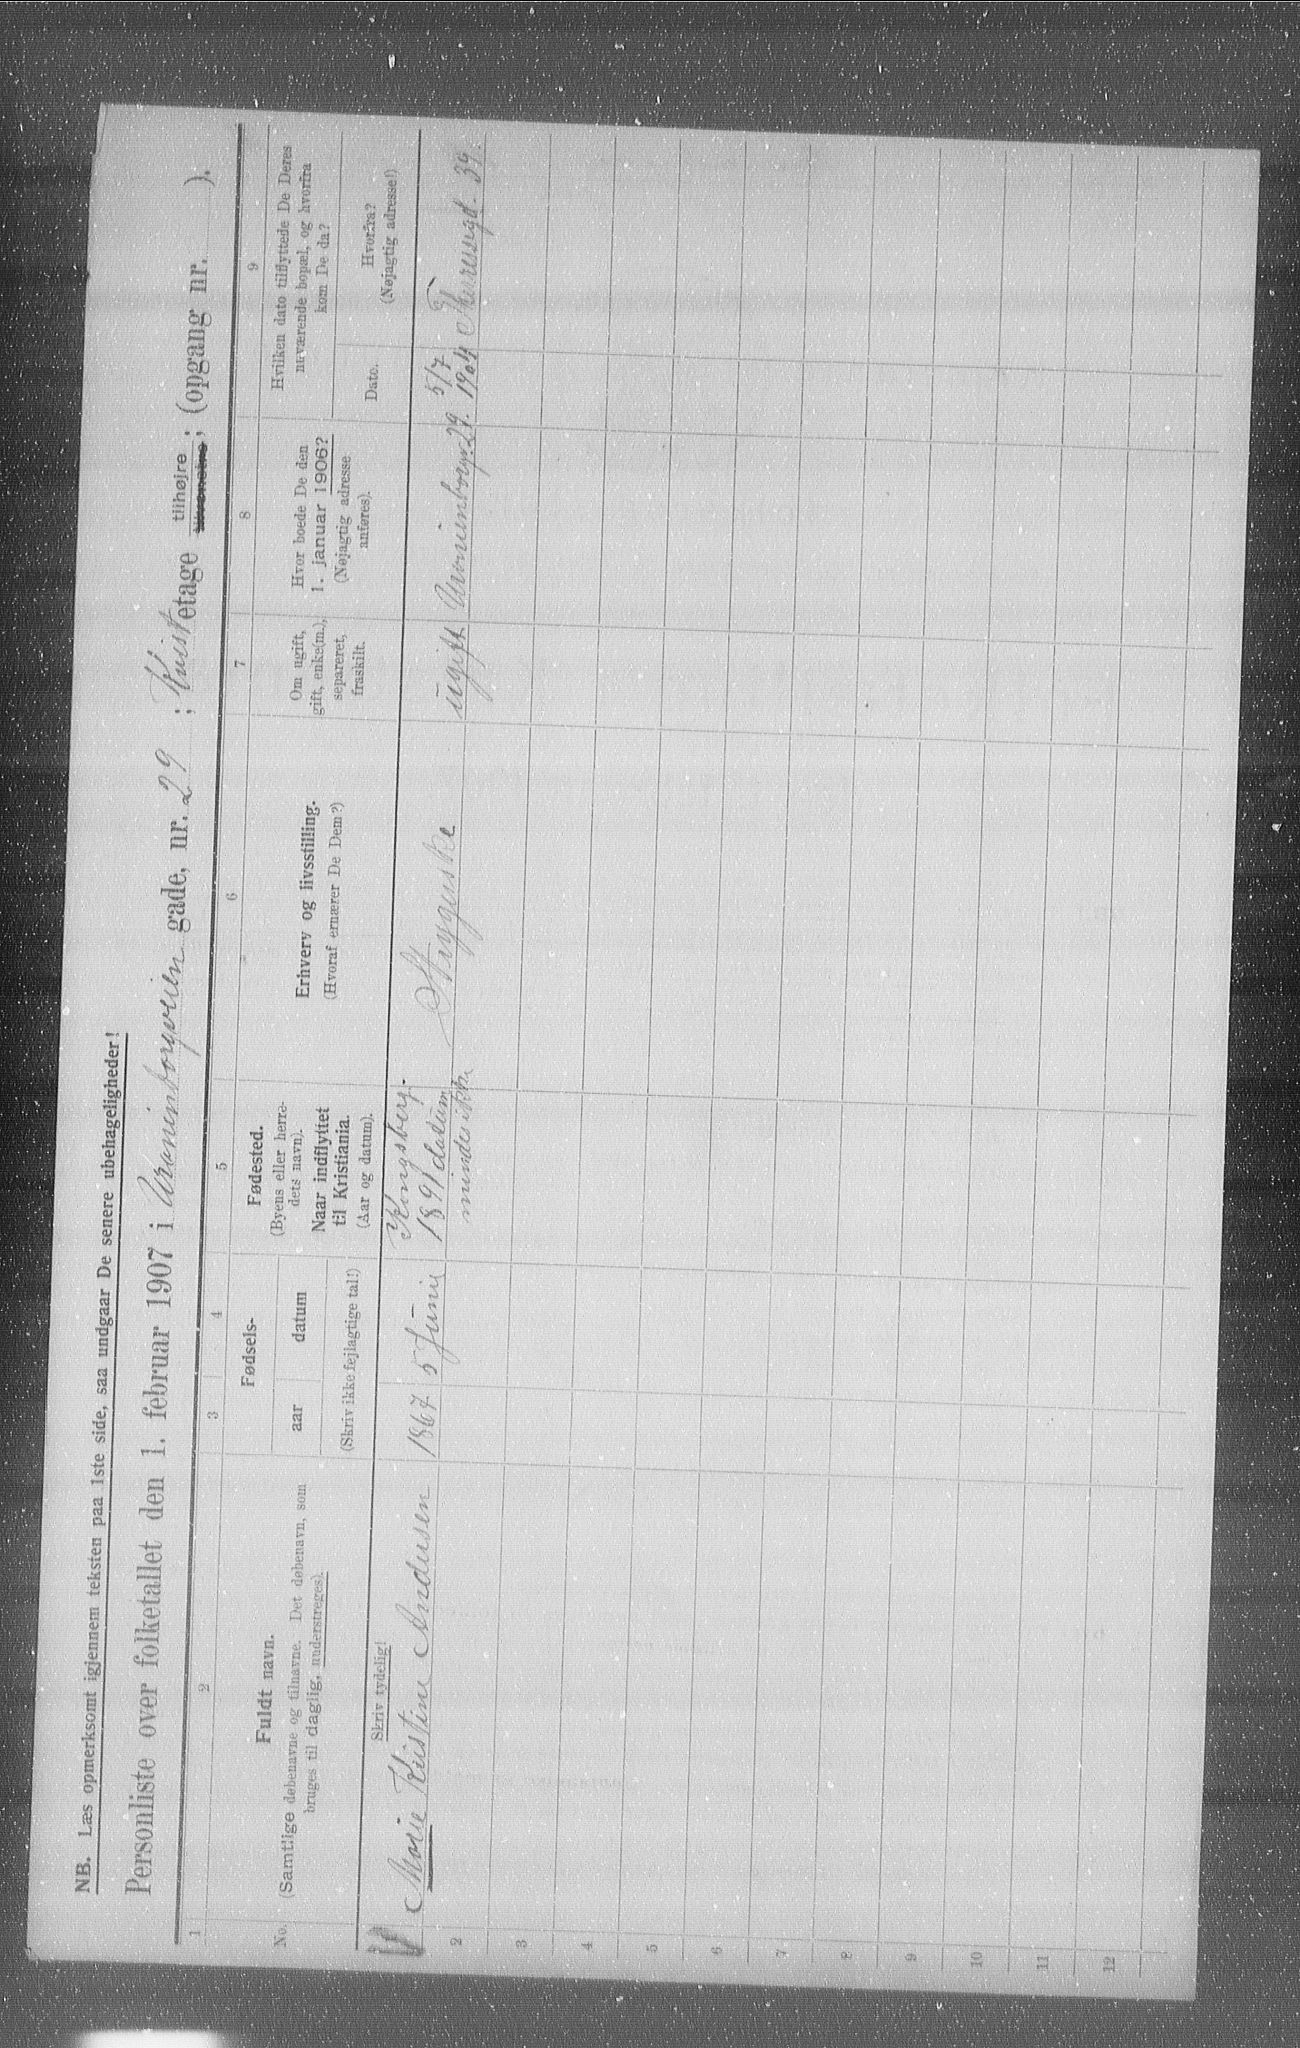 NB. Læs opmerksomt igjennem teksten paa 1ste side, saa undgaar De senere ubehageligheder!
Personliste over folketallet den 1. februar 1907 i Arkeinborgveien gade, nr. 29 ; Kvist etage tilhøjre ; (opgang nr. ).
1 2 3 4 5 6 7 8 9
No.
Fuldt navn.
(Samtlige døbenavne og tilnavne. Det døbenavn, som
bruges til daglig, understreges).
Skriv tydelig!
Fødsels-
aar datum
(Skriv ikke fejlagtige tal!)
Fødested.
(Byens eller herre-
dets navn).
Naar indflyttet
til Kristiania.
(Aar og datum).
Erhverv og livsstilling.
(Hvoraf ernærer De Dem?)
Om ugift,
gift, enke(m.),
separeret,
fraskilt.
Hvor boede De den
1. januar 1906?
(Nøjagtig adresse
anføres).
Hvilken dato tilflyttede De Deres
nuværende bopæl, og hvorfra
kom De da?
Dato.
Hvorfra?
(Nøjagtig adresse!)
1
Marie Kristine Andersen
1867
5 Juni
Kongsberg.
1891 datum
mindes ikke
Strygerske
ugift
29.
5/7
1904
39.
2
3
4
5
6
7
8
9
10
11
12